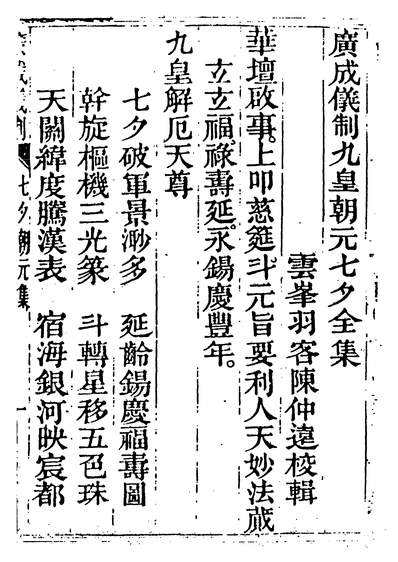 廣成儀制九皇朝元七夕全集
雲峯羽客陳仲遠校輯
華壇啟事。上叩慈筵。斗元旨要利人天妙法蔵
立立福。祿壽延。永錫慶豐年。
九皇解厄天尊
七夕破軍景渺多 延齡錫慶福壽圖
幹旋樞機三光篆 斗轉星移五色珠
天關緯度騰漢表 宿海銀河映宸都
七夕朝元集